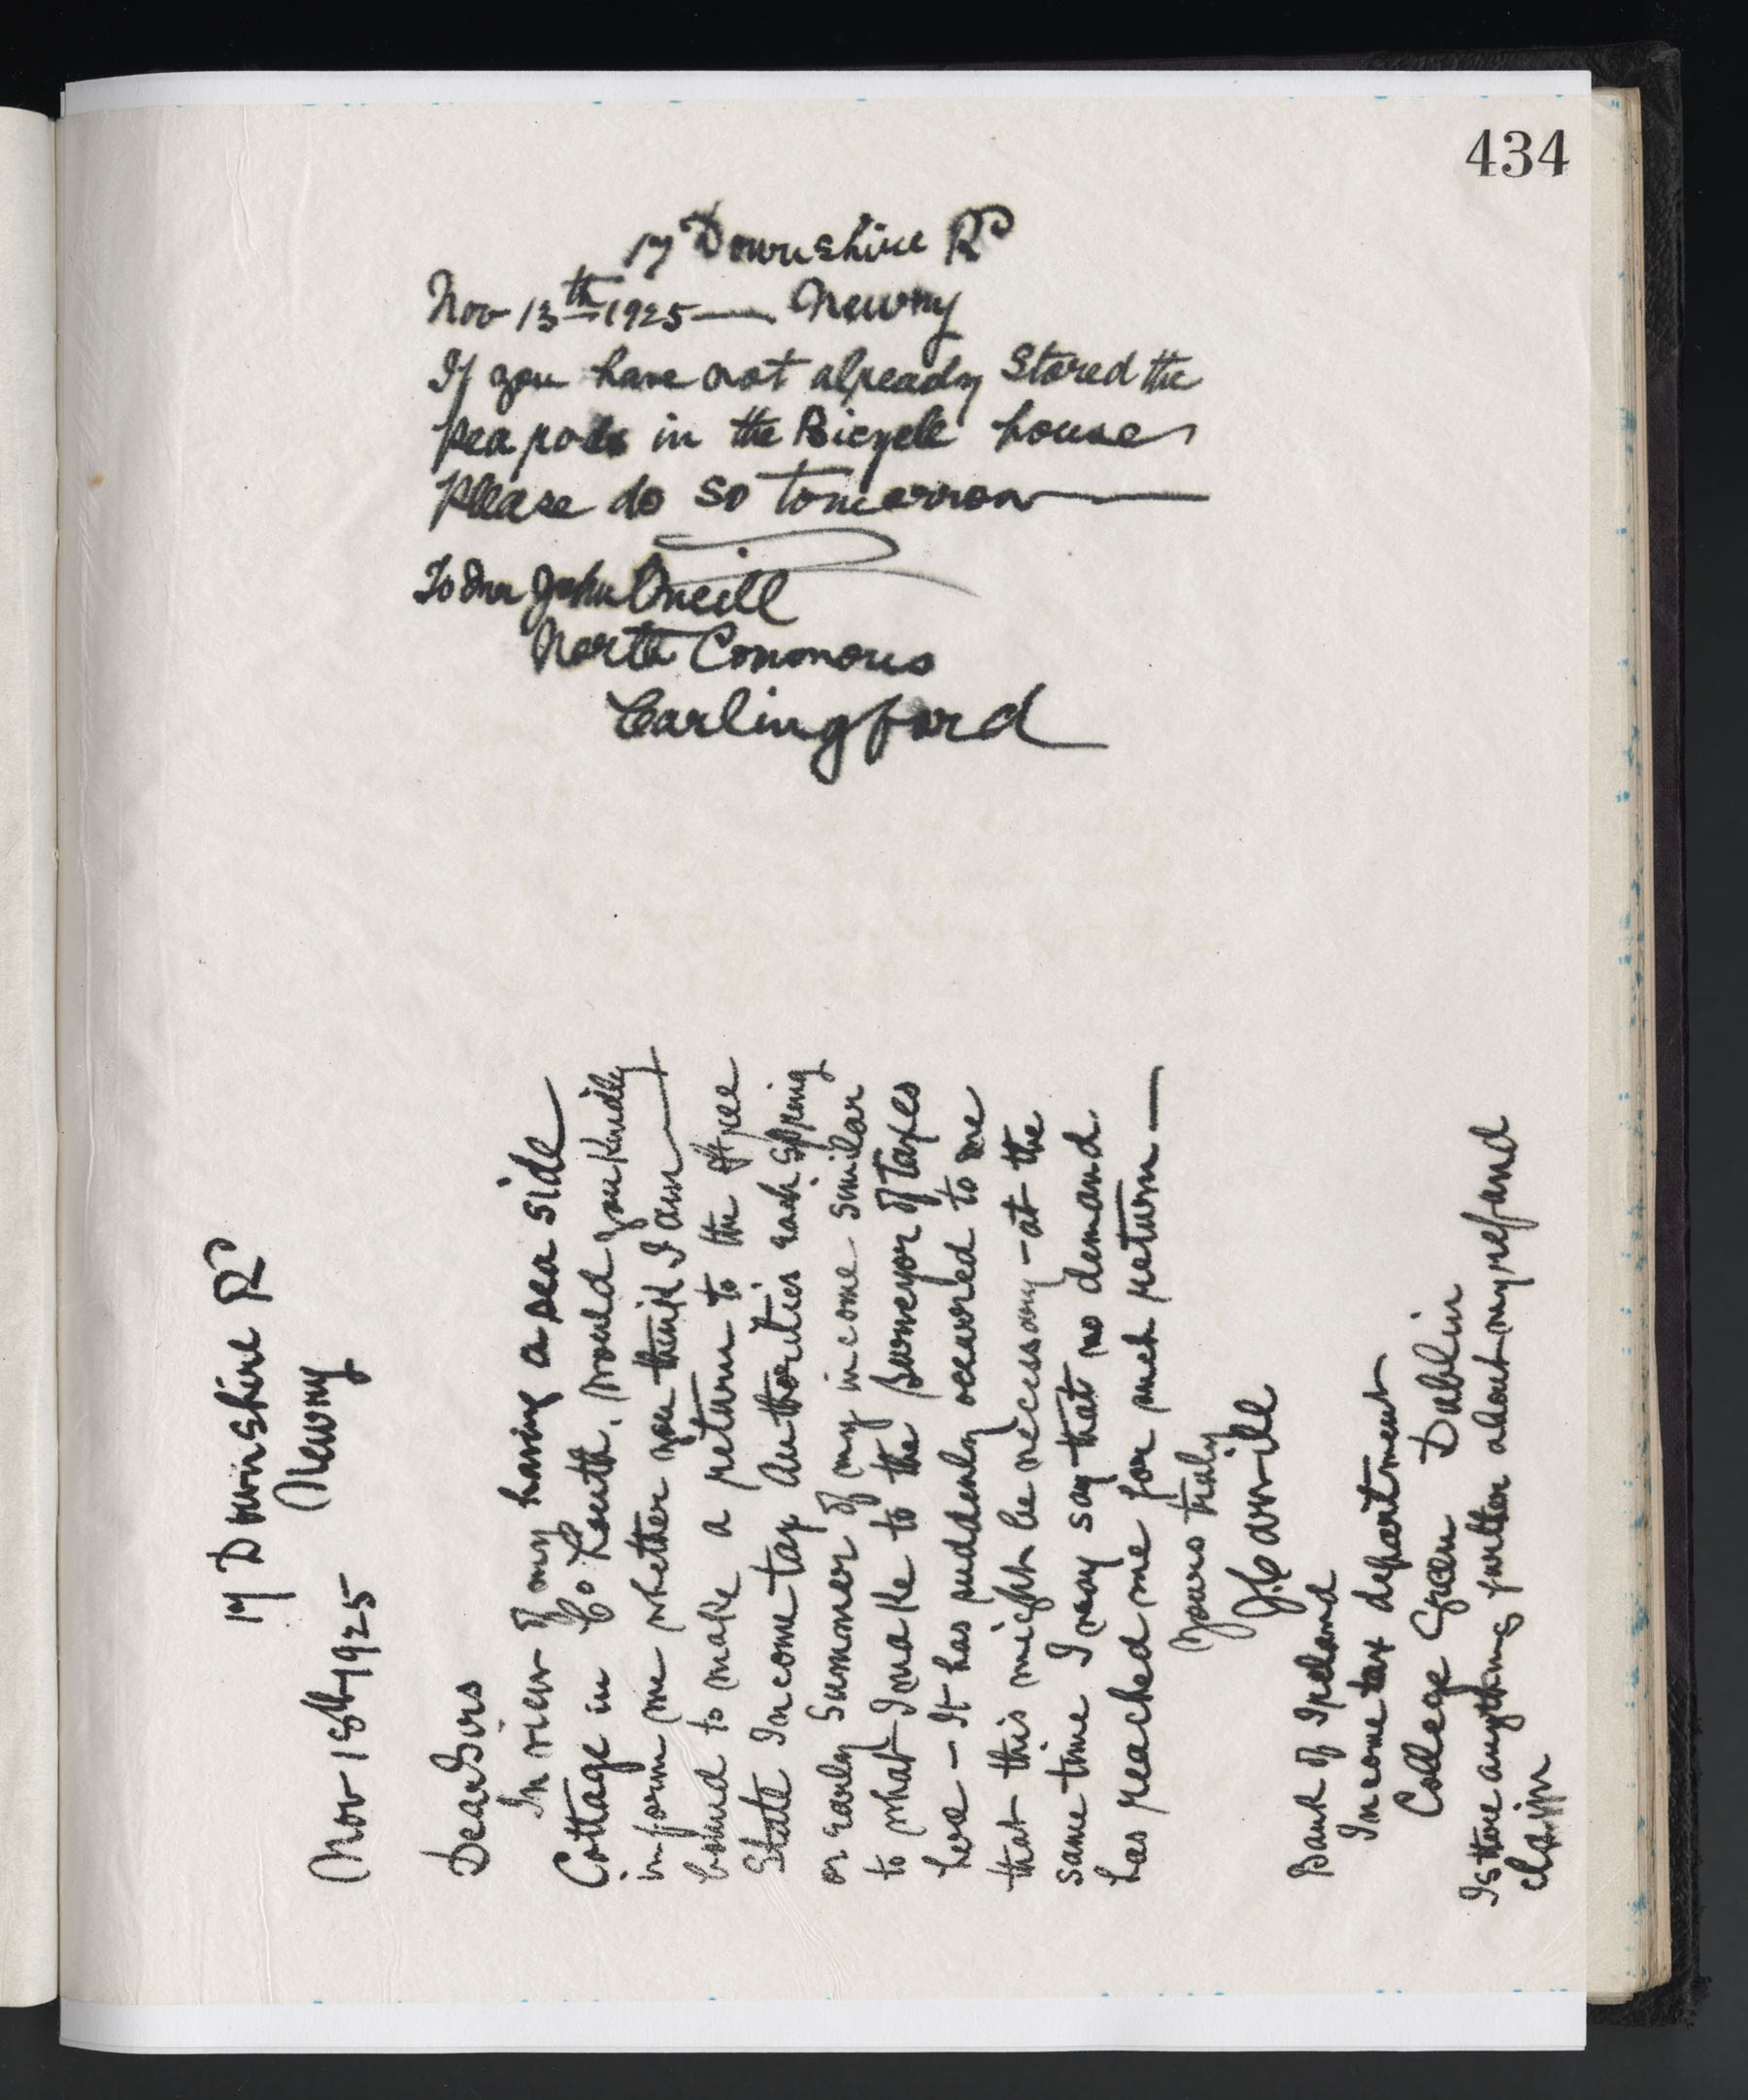 434
17 Downshire Rd
Nov 13th 1925 — Newry
If you have not already Stored the
pea pods in the Bicycle house
Please do so tomorrow —
To Mr John Oneill
North Commons
Carlingford
17 Downshire Rd
Newry
Nov 15th 1925
Dear Sirs
In view of my having a sea side
Cottage in Co Louth, would you kindly
inform me whether you think I am —
bound to make a return to the Free
State Income tax Authorities each Spring
or early Summer of my income similar
to what I make to the Surveyor of Taxes
here – It has suddenly occurred to me
that this might be necessary – at the
same time I may say that no demand
has reached me for such return —
Yours truly
J Carvill
Bank of Ireland
Income tax department
College Green Dublin
Is there anything further about my refund
claim